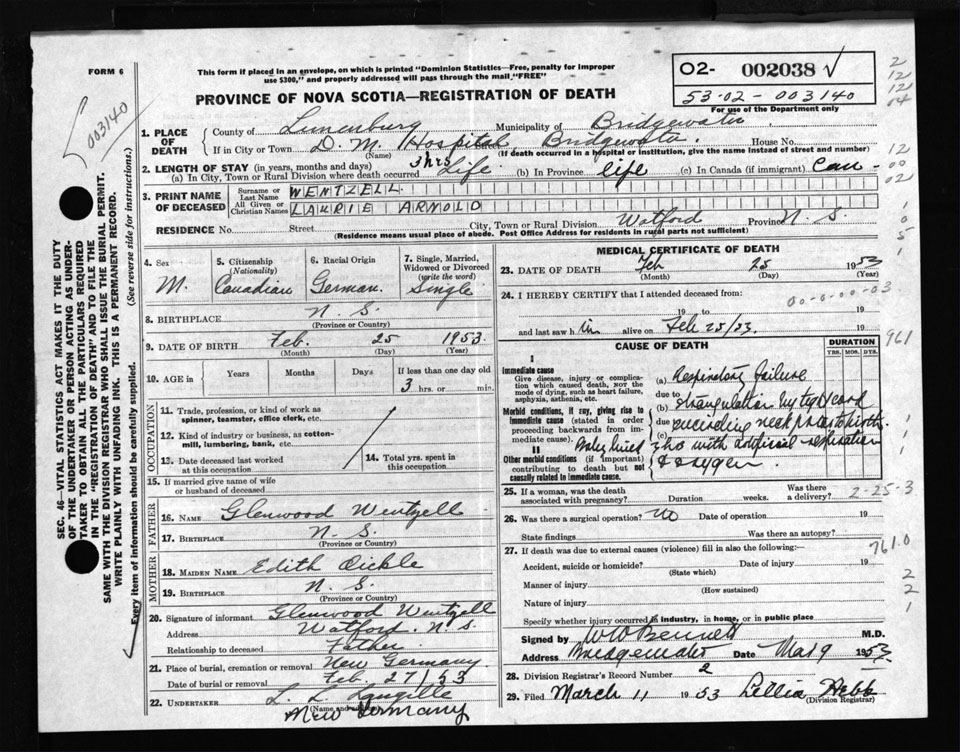 FORM 6
This form if placed in an envelope, on which is printed "Dominion Statistics—Free, penalty for improper
use $300," and properly addressed will pass through the mail "FREE"
PROVINCE OF NOVA SCOTIA—REGISTRATION OF DEATH
O2- 002038 √
53-02-003140
For use of the Department only
003140
2
12
12
04
12
00
02
1
0
5
1
1. PLACE OF DEATH
County of Lunenburg Municipality of Bridgewater
If in City or Town D. M. Hospital, Bridgewater House No.
(Name) (If death occurred in a hospital or institution, give the name instead of street and number)
2. LENGTH OF STAY (in years, months and days)
(a) In City, Town or Rural Division where death occurred 3 hrs Life (b) In Province life (c) In Canada (if immigrant) Can
3. PRINT NAME OF DECEASED
Surname or Last Name WENTZELL
All Given or Christian Names LAURIE ARNOLD
RESIDENCE No. Street City, Town or Rural Division Watford Province N. S.
(Residence means usual place of abode. Post Office Address for residents in rural parts not sufficient)
SEC. 46—VITAL STATISTICS ACT MAKES IT THE DUTY
OF THE UNDERTAKER OR PERSON ACTING AS UNDER-
TAKER TO OBTAIN ALL THE PARTICULARS REQUIRED
IN THE "REGISTRATION OF DEATH" AND TO FILE THE
SAME WITH THE DIVISION REGISTRAR WHO SHALL ISSUE THE BURIAL PERMIT.
WRITE PLAINLY WITH UNFADING INK. THIS IS A PERMANENT RECORD.
Every item of information should be carefully supplied. (See reverse side for instructions.)
4. Sex
M.
5. Citizenship
(Nationality)
Canadian
6. Racial Origin
German.
7. Single, Married,
Widowed or Divorced
(write the word)
Single
8. BIRTHPLACE N. S.
(Province or Country)
9. DATE OF BIRTH Feb. 25 1953
(Month) (Day) (Year)
10. AGE in Years Months Days If less than one day old
3 hrs. or min.
OCCUPATION
11. Trade, profession, or kind of work as
spinner, teamster, office clerk, etc.
12. Kind of industry or business, as cotton-
mill, lumbering, bank, etc.
13. Date deceased last worked
at this occupation
14. Total yrs. spent in
this occupation
15. If married give name of wife
or husband of deceased
FATHER
16. Name Glenwood Wentzell
17. Birthplace N. S.
(Province or Country)
MOTHER
18. MAIDEN NAME Edith Oickle
19. BIRTHPLACE N. S.
(Province or Country)
20. Signature of informant Glenwood Wentzell
Address Watford. N. S.
Relationship to deceased Father
21. Place of burial, cremation or removal New Germany
Date of burial or removal Feb. 27/53
22. UNDERTAKER L. L. Langille
(Name and
New Germany
MEDICAL CERTIFICATE OF DEATH
23. DATE OF DEATH Feb 25 1953
(Month) (Day) (Year)
24. I HEREBY CERTIFY that I attended deceased from:
00-0-00-03
19 to 19
and last saw him alive on Feb 25/53. 19
961
CAUSE OF DEATH
DURATION
YRS. MOS. DYS.
I
Immediate cause
Give disease, injury or complica-
tion which caused death, NOT the
mode of dying, such as heart failure,
asphyxia, asthenia, etc.
(a) Respiratory failure
due to strangulation by tight cord
Morbid conditions, if any, giving rise to
immediate cause (stated in order
proceeding backwards from im-
mediate cause).
due encircling neck prior to birth
(c)
Baby lived 3 hrs with artificial respiration
& oxygen.
II
Other morbid conditions (if important)
contributing to death but not
causally related to immediate cause.
1
1
25. If a woman, was the death
associated with pregnancy? Duration weeks. Was there
a delivery?
2-25-3
26. Was there a surgical operation? No Date of operation 19
State findings Was there an autopsy?
761.0
27. If death was due to external causes (violence) fill in also the following:—
Accident, suicide or homicide? Date of injury 19
(State which)
Manner of injury
(How sustained)
Nature of injury
2
2
1
Specify whether injury occurred in industry, in home, or in public place
Signed by W W Bennett M.D.
Address Bridgewater Date Mar 9 1953
28. Division Registrar's Record Number 2
29. Filed March 11 1953 Lillia Hebb
(Division Registrar)